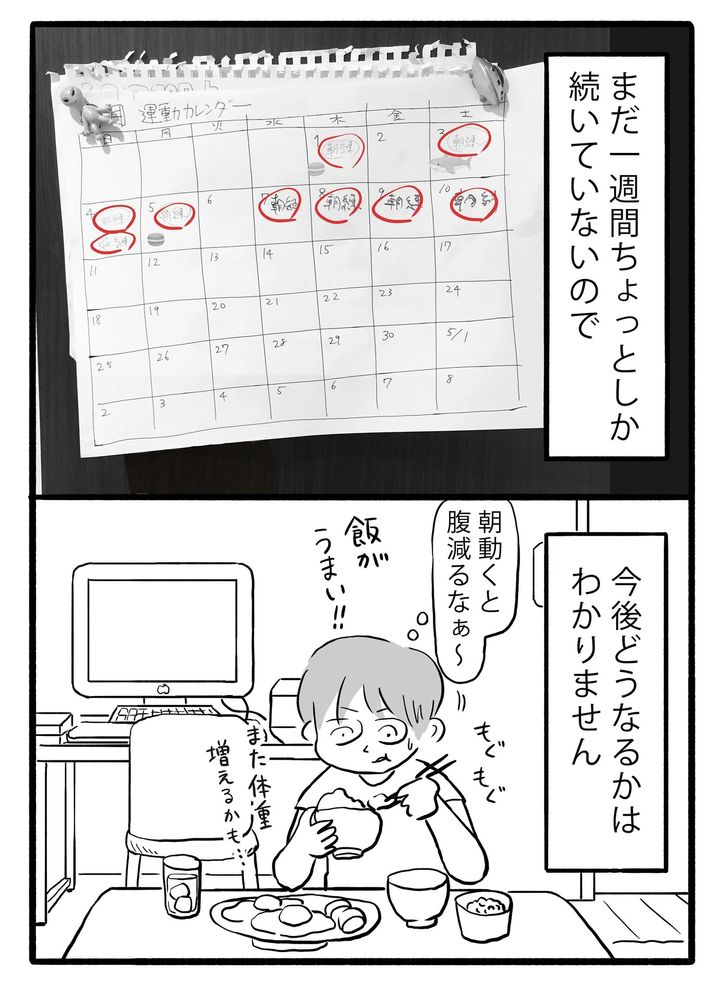 まだ一週間ちょっとしか
続いていないので
月 運動カレンダー
日 月 火 水 木 金 土
1 朝練 2 3 朝練
4 朝練 5 朝練 6 7 朝練 8 朝練 9 朝練 10 朝練
11 12 13 14 15 16 17
18 19 20 21 22 23 24
25 26 27 28 29 30 5/1
2 3 4 5 6 7 8
今後どうなるかは
わかりません
朝動くと
腹減るなぁ〜
飯が
うまい!!
もぐ
もぐ
また体重
増えるかも…